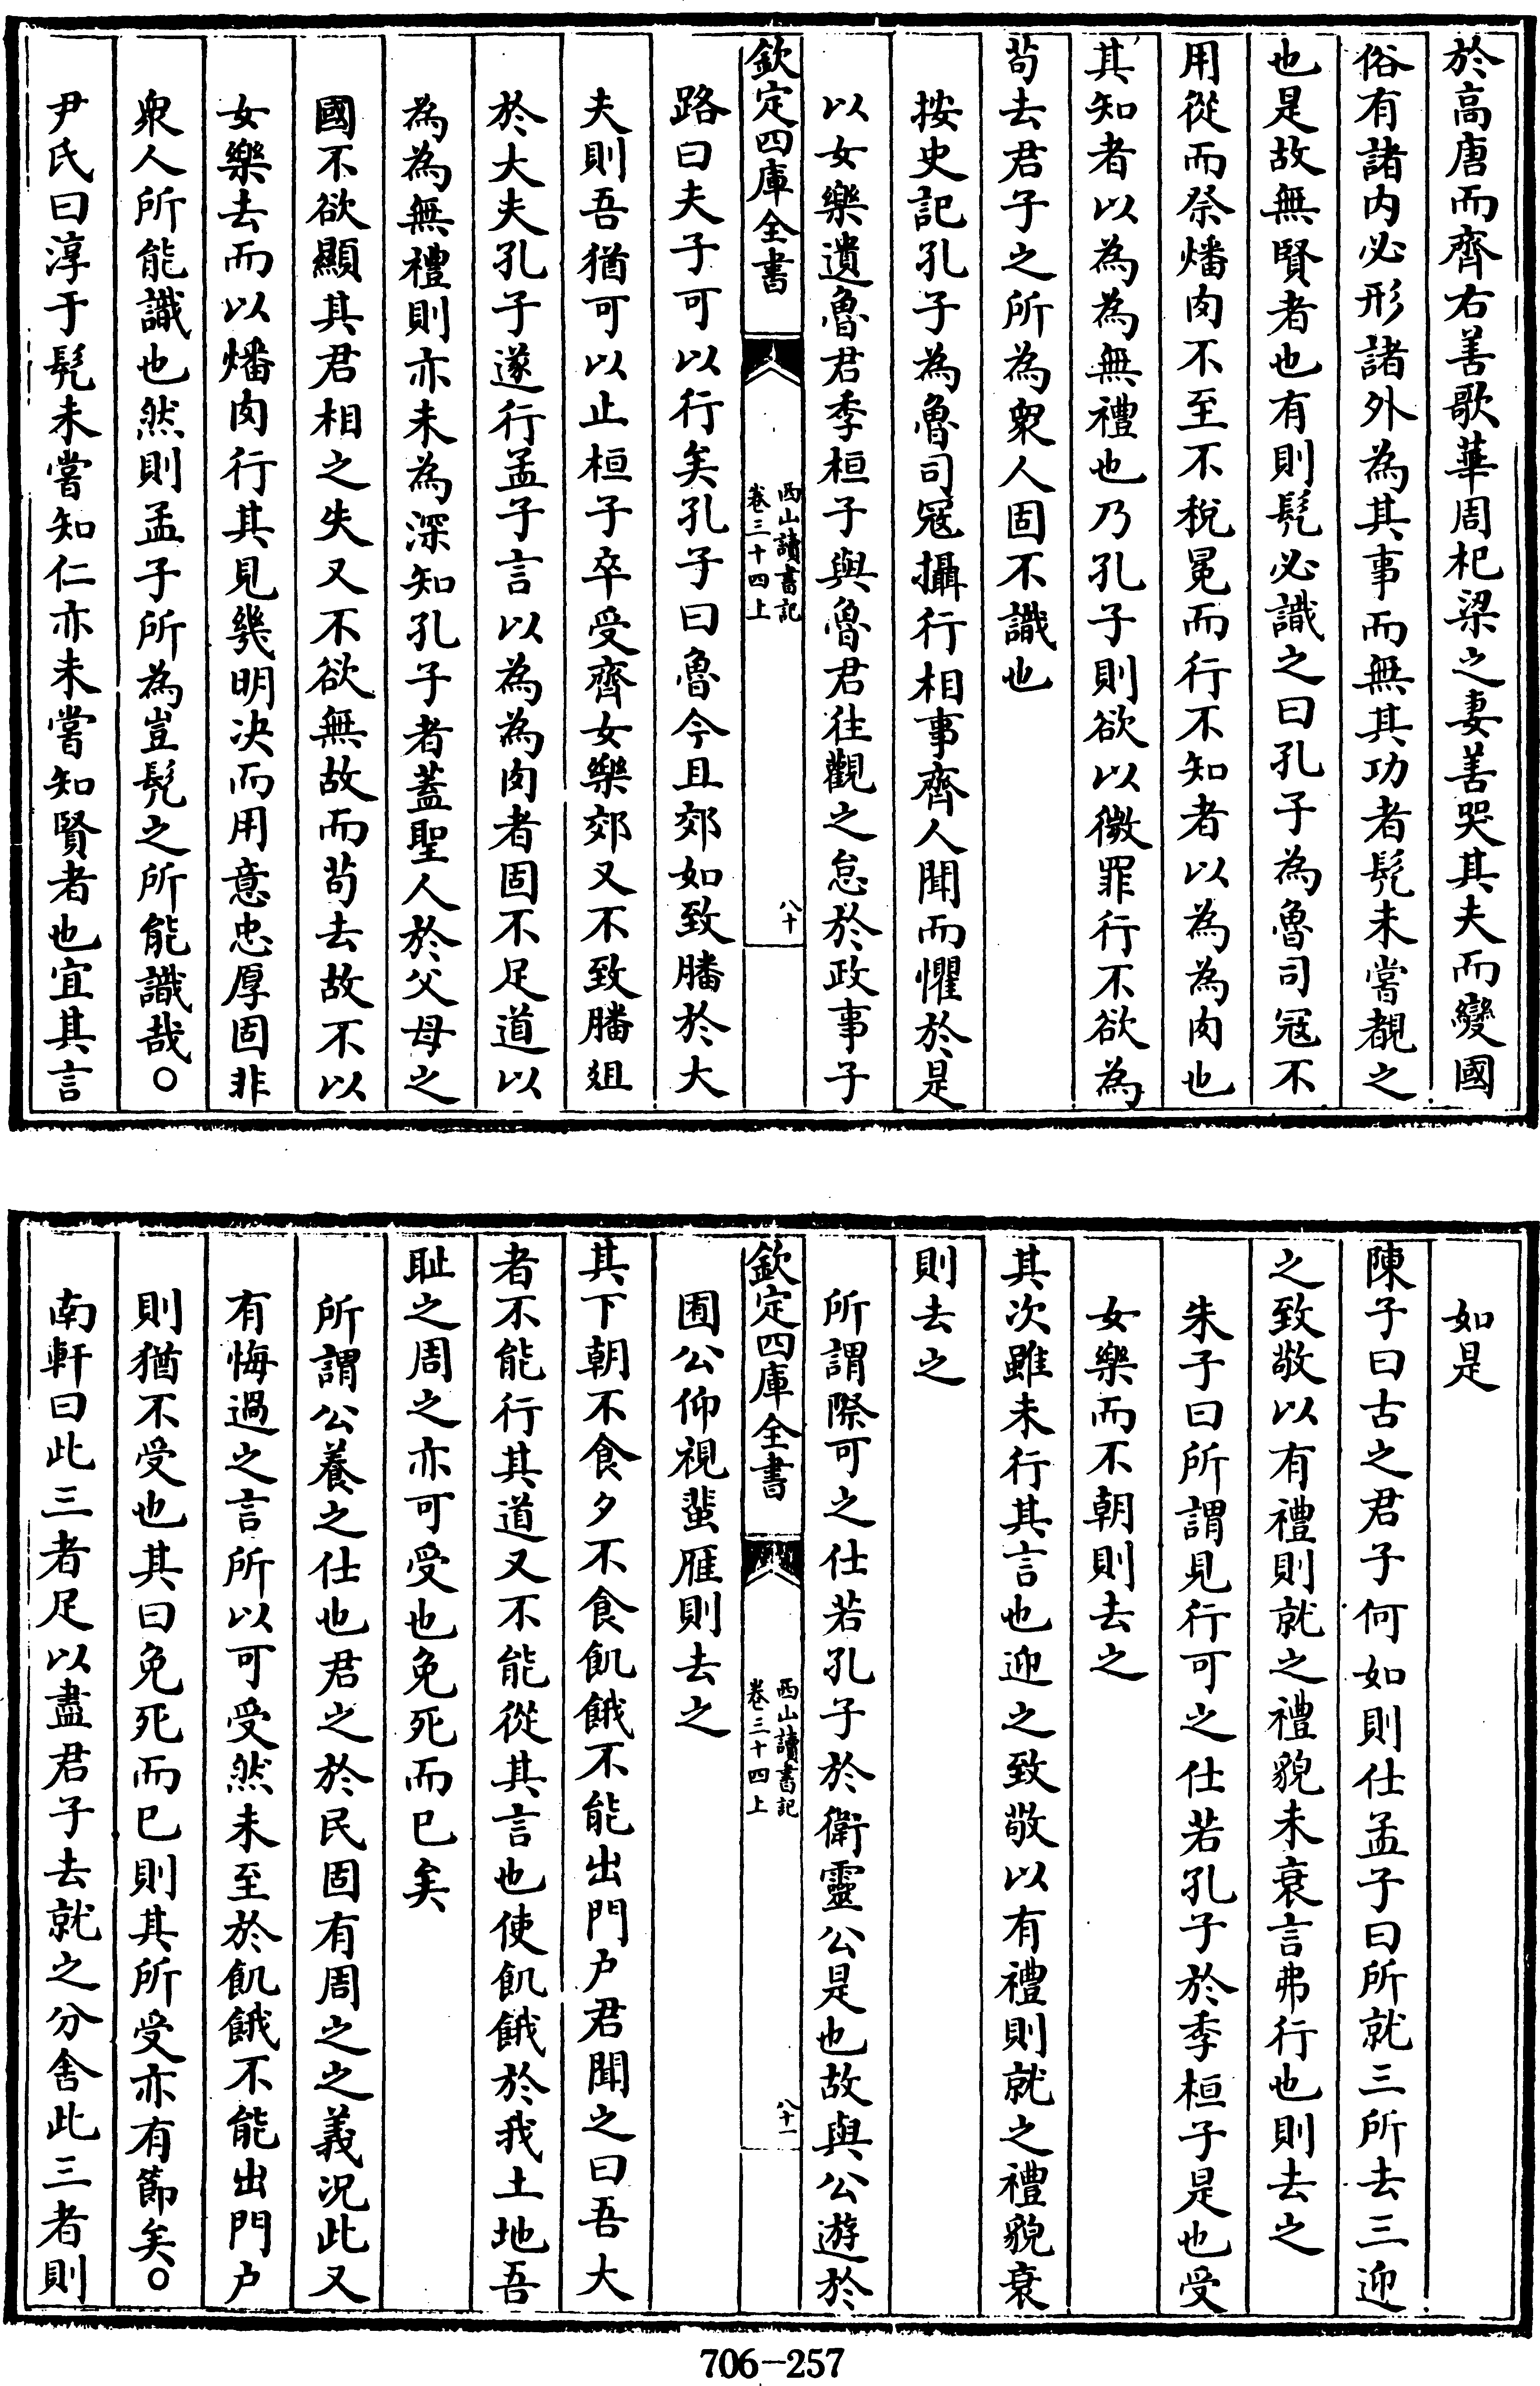 於高唐而齊右善歌華周杞梁之妻善哭其夫而變國
俗有諸内必形諸外為其事而無其功者髠未嘗覩之
也是故無賢者也有則髠必識之曰孔子為魯司冦不
用從而祭燔肉不至不稅冕而行不知者以為為肉也
其知者以為為無禮也乃孔子則欲以微罪行不欲為
苟去君子之所為衆人固不識也
按史記孔子為魯司冦攝行相事齊人聞而懼於是
以女樂遺魯君季桓子與魯君往觀之怠於政事子
欽定四庫全書
西山讀書記
卷三十四上
八十
路曰夫子可以行矣孔子曰魯今且郊如致膰於大
夫則吾猶可以止桓子卒受齊女樂郊又不致膰俎
於大夫孔子遂行孟子言以為為肉者固不足道以
為為無禮則亦未為深知孔子者蓋聖人於父母之
國不欲顯其君相之失又不欲無故而苟去故不以
女樂去而以燔肉行其見幾明决而用意忠厚固非
衆人所能識也然則孟子所為豈髠之所能識哉○
尹氏曰淳于髠未嘗知仁亦未嘗知賢者也宜其言
如是
陳子曰古之君子何如則仕孟子曰所就三所去三迎
之致敬以有禮則就之禮貌未衰言弗行也則去之
朱子曰所謂見行可之仕若孔子於季桓子是也受
女樂而不朝則去之
其次雖未行其言也迎之致敬以有禮則就之禮貌衰
則去之
所謂際可之仕若孔子於衛靈公是也故與公遊於
欽定四庫全書
西山讀書記
卷三十四上
八十一
囿公仰視蜚雁則去之
其下朝不食夕不食飢餓不能出門户君聞之曰吾大
者不能行其道又不能從其言也使飢餓於我土地吾
恥之周之亦可受也免死而已矣
所謂公養之仕也君之於民固有周之之義况此又
有悔過之言所以可受然未至於飢餓不能出門户
則猶不受也其曰免死而已則其所受亦有節矣○
南軒曰此三者足以盡君子去就之分舍此三者則
706-257